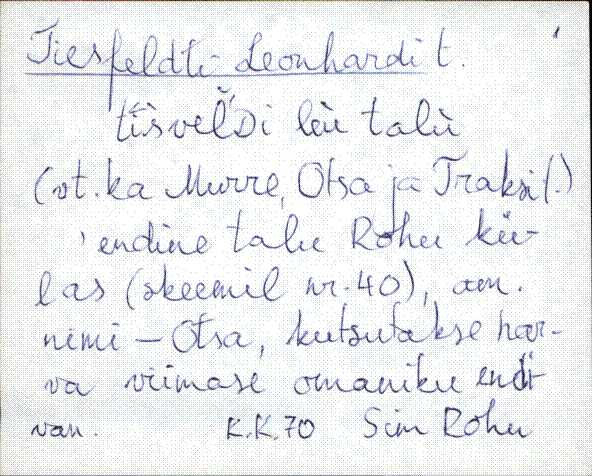 Tiesfeldti-Leonhardi t.
leu talu
(vt. ka Murre, Otsa ja Traksi t.)
endine talu Rohu kü-
las (skeemil nr. 40), am.
nimi – Otsa, kutsutakse har-
va viimase omaniku endi
van. K.K.70 Sim Rohu